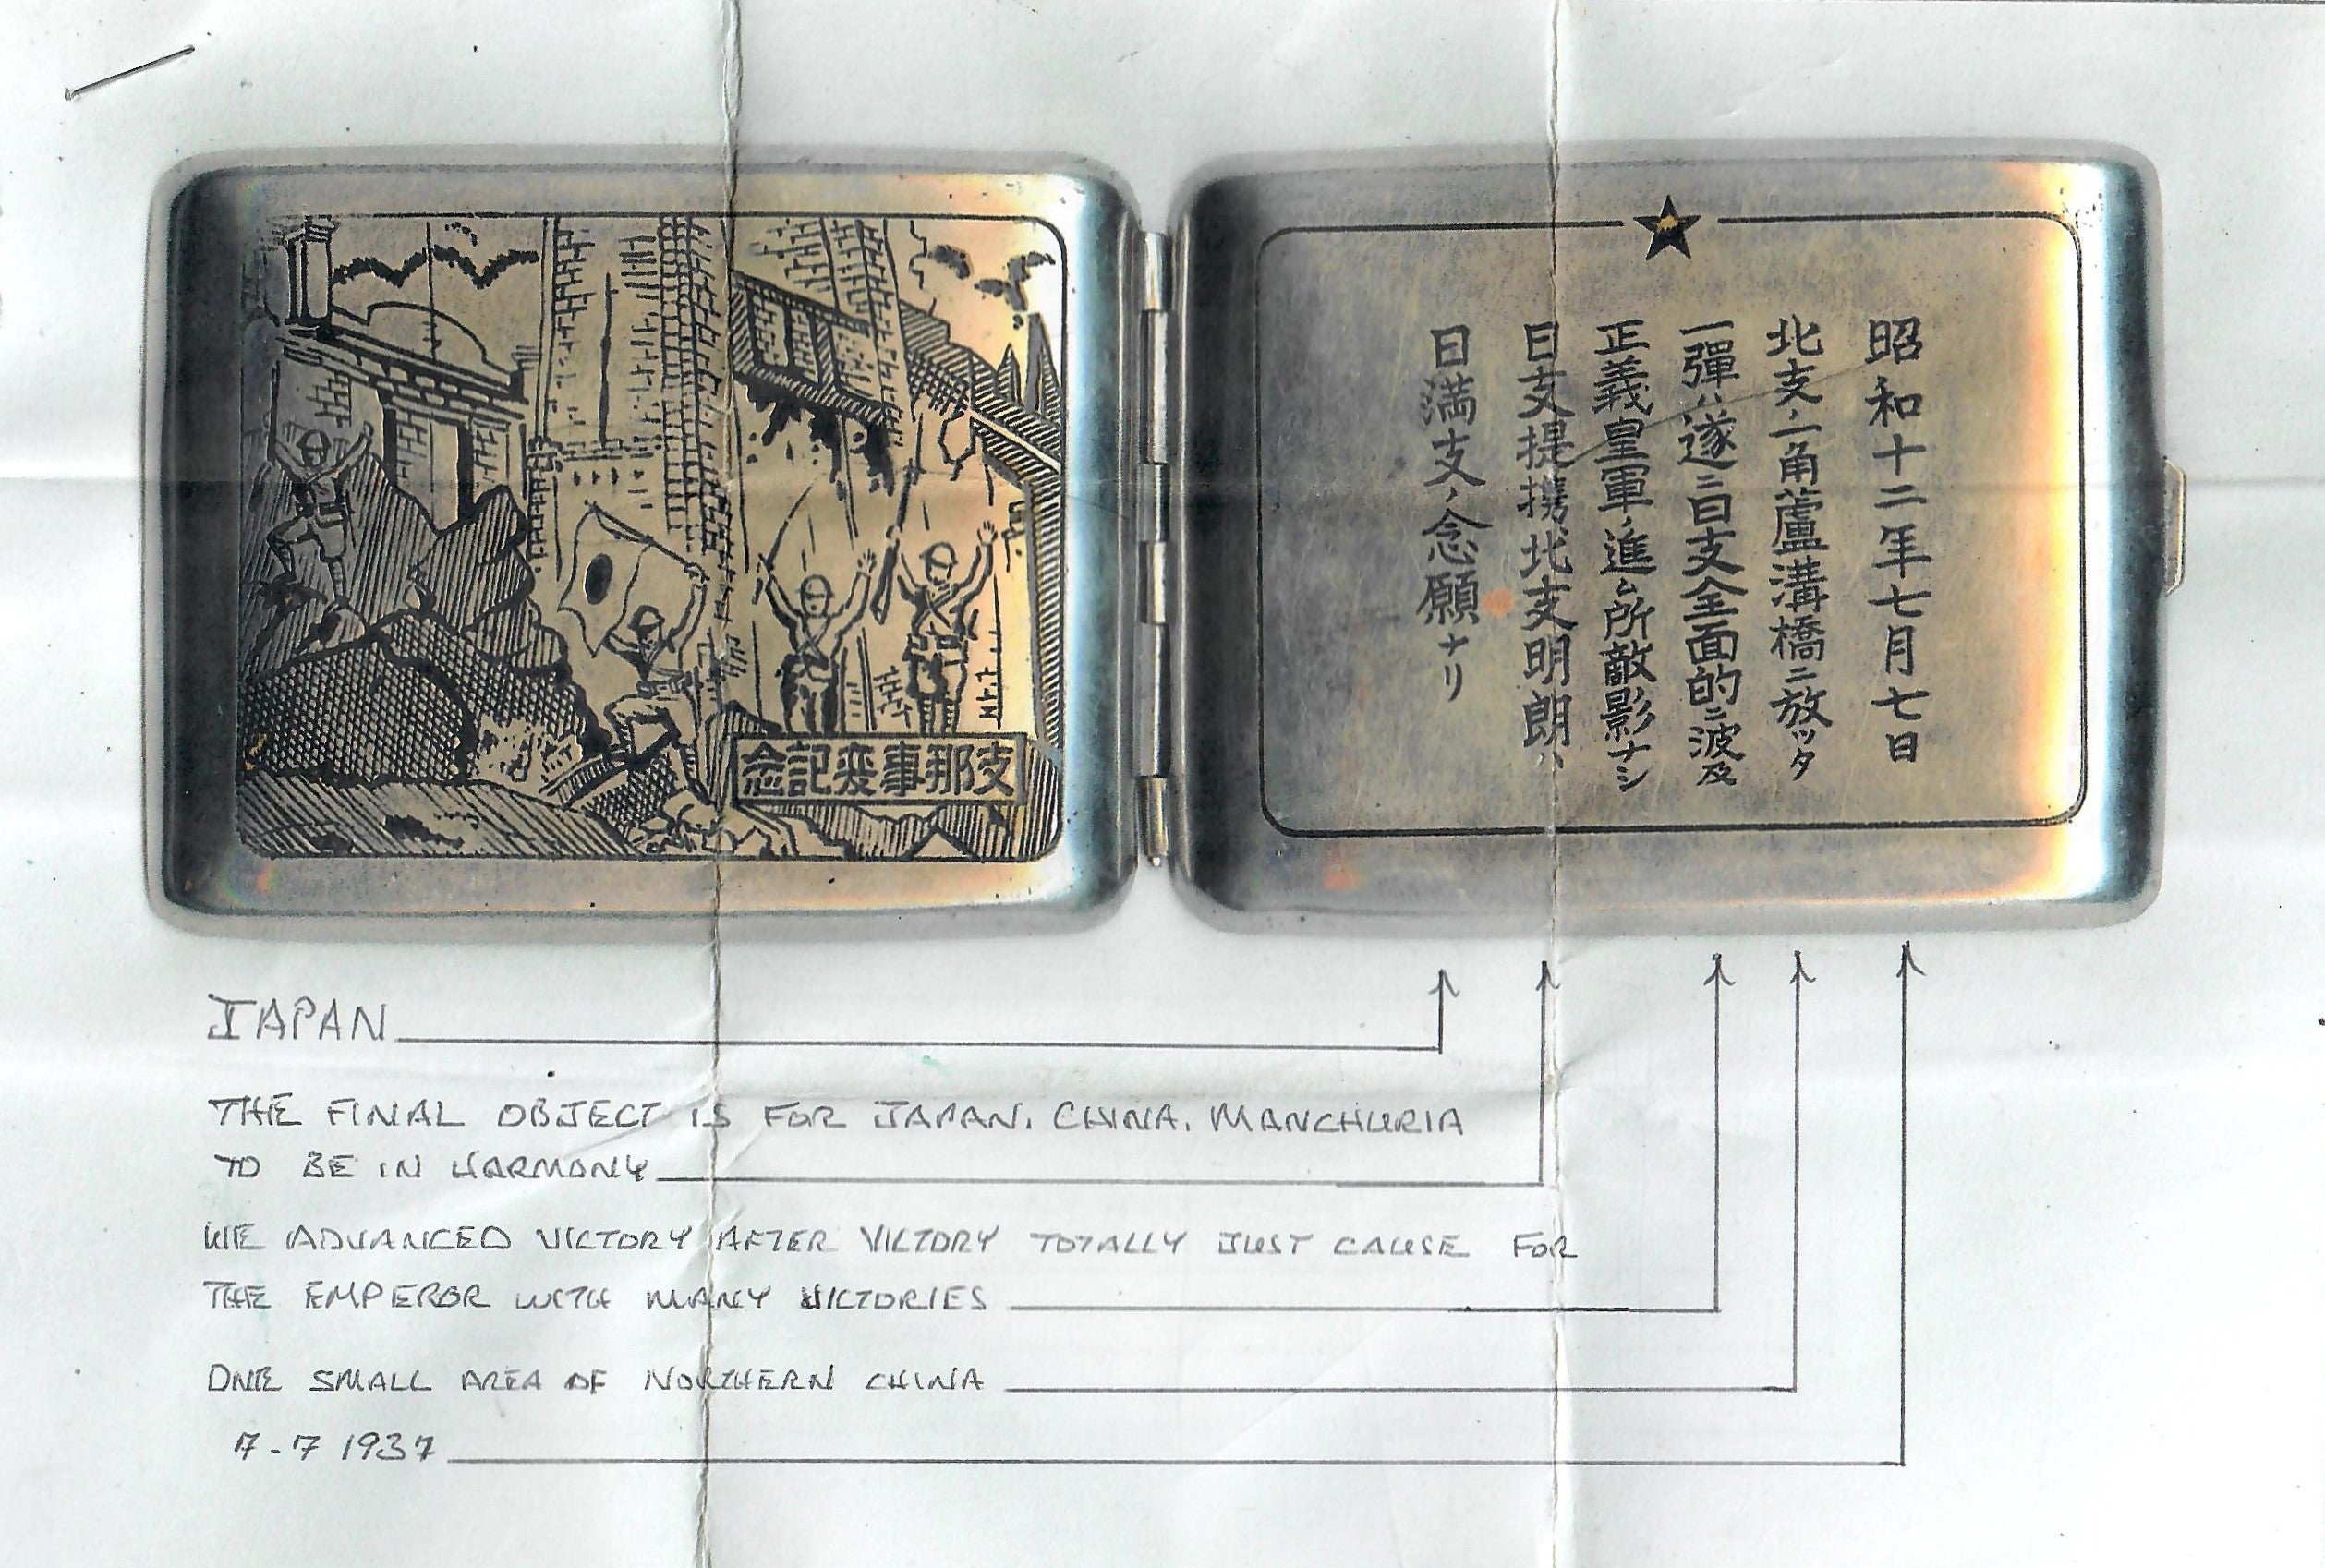 支那事変記念
昭和十二年七月七日
北支ノ一角蘆溝橋ニ放ッタ
一彈ハ遂ニ日支全面的ニ波及
正義皇軍ノ進ム所敵影ナシ
日支提携北支明朗ハ
日満支ノ念願ナリ
JAPAN
THE FINAL OBJECT IS FOR JAPAN. CHINA. MANCHURIA
TO BE IN HARMONY
WE ADVANCED VICTORY AFTER VICTORY TOTALLY JUST CAUSE FOR
THE EMPEROR WITH MANY VICTORIES
ONE SMALL AREA OF NORTHERN CHINA
7-7 1937